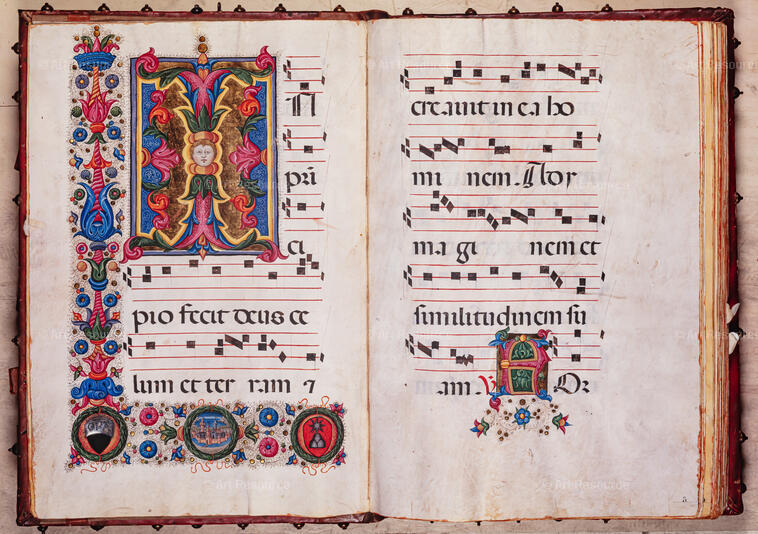 IN
prī
ci
pio fecit deus ce
lum et ter ram ⁊
creavit in ea ho
mi nem. Ad y
ma gi nem et
similitudinem su
am. V FOr
© Art Resource